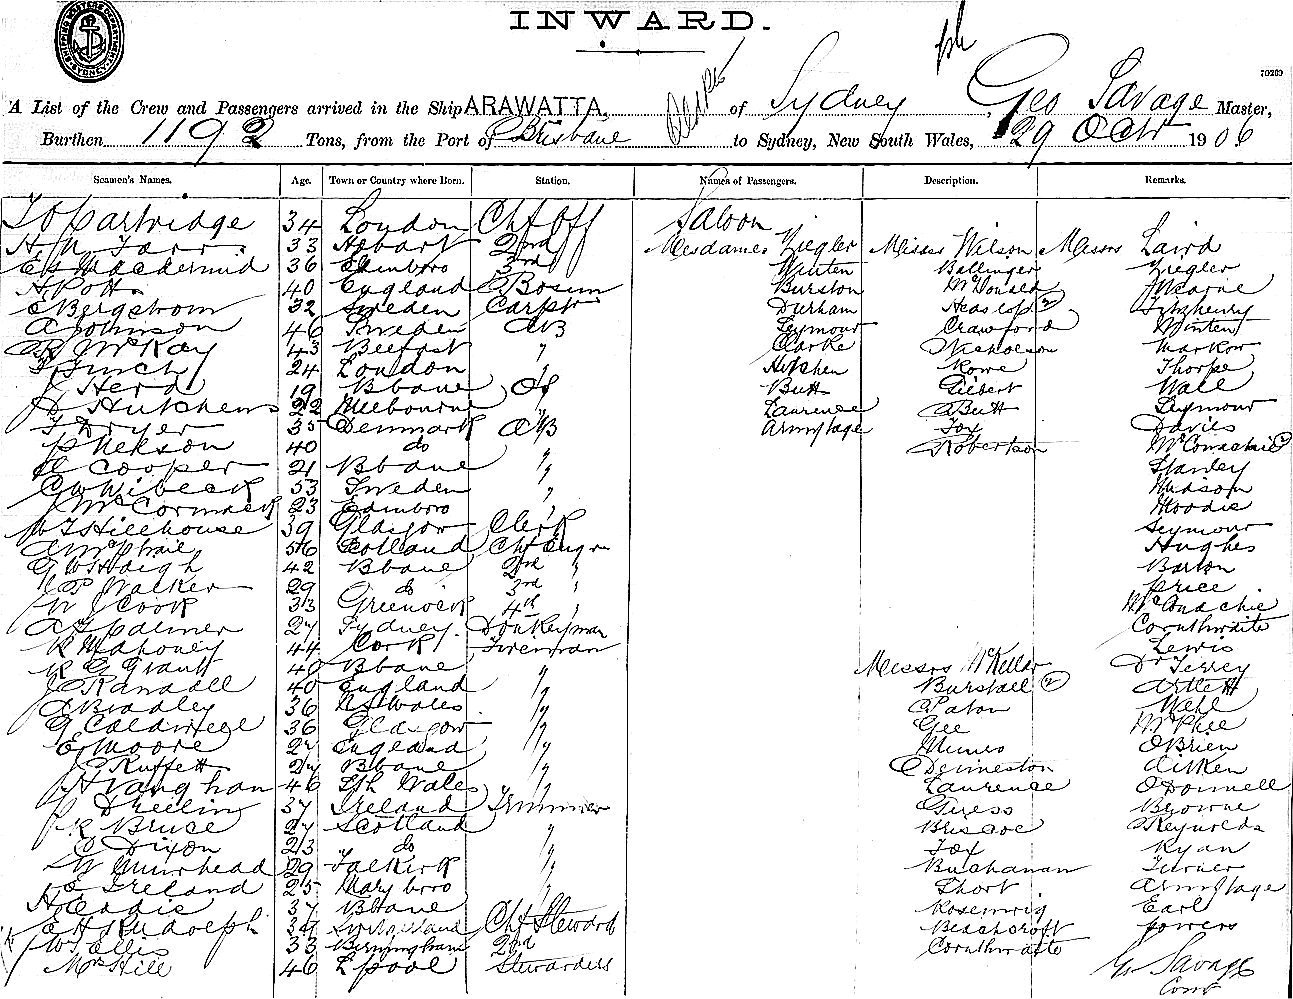 SHIPPING MASTERS DEPARTMENT SYDNEY
INWARD.
70269
A List of the Crew and Passengers arrived in the Ship ARAWATTA, of Sydney, Geo Savage Master,
Burthen 1192 Tons, from the Port of Brisbane to Sydney, New South Wales, 29 Octr 1906
Seamen's Names. Age. Town or Country where Born. Station. Names of Passengers. Description. Remarks.
T O Partridge 34 London Chf Off Saloon
H M Farr 33 Hobart 2nd Mesdames Ziegler Misses Wilson Messrs Laird
Mackermid 36 Edinboro 3rd Winten Ballinger Ziegler
H Pott 40 England Bosun Burston McDonald
E Bergstrom 32 Sweden Carptr Durham Heaslop 2 Fitzhenry
A Johnson 46 Sweden AB Seymour Crawford Winten
R McKay 43 Belfast " Clarke Nicholson Markow
T Finch 24 London " Hutchen Rowe Thorpe
J Herd 19 Bbane OS Butt Gilbert Wall
Hutchens 22 Melbourne " Laurence Butt Seymour
T Dryer 35 Denmark AB Armstage Fox Davies
P Nelson 40 do " Robertson McConachie 2
H Cooper 21 Bbane " Stanley
C Wibeck 53 Sweden " Hudson
J McCormack 23 Edinboro " Moodie
W T Hillhouse 39 Glasgow Clerk Seymour
A McPhail 56 Scotland Chf Engr Hughes
G W Haigh 42 Bbane 2nd " Barton
R P Walker 29 do 3rd " Price
W J Cook 33 Greenock 4th " McConachie
A G Palmer 27 Sydney Donkeyman Cornthwaite
R Mahoney 44 Cork Fireman Lewis
R G Grant 40 Bbane " Messrs McKellar Dr Terrey
J Randell 40 England " Burstall 2 Artlett
A Bradley 36 N S Wales " Paton Wehl
G Caldwell 36 Glasgow " Gee McPhee
E Moore 27 England " Munro O'Brien
J Ruffett 27 Bbane " Denneston Aitken
H Vaughan 46 Sth Wales " Laurence O'Donnell
J Dreelin 37 Ireland Trimmer Guess Browne
J R Bruce 27 Scotland " Briscoe Reynolds
C Dixon 23 do " Fox Ryan
W Muirhead 29 Falkirk " Buchanan Turner
E Ireland 25 Maryboro " Short Armstage
H Eddie 37 Bbane " Rosenwig Earl
E H Rudolph 34 Switzerland Chf Steward Beachcroft Powers
W Ellis 33 Birmingham 2nd Cornthwaite
Mrs Hill 46 Lpool Stewardess Geo Savage
Comr